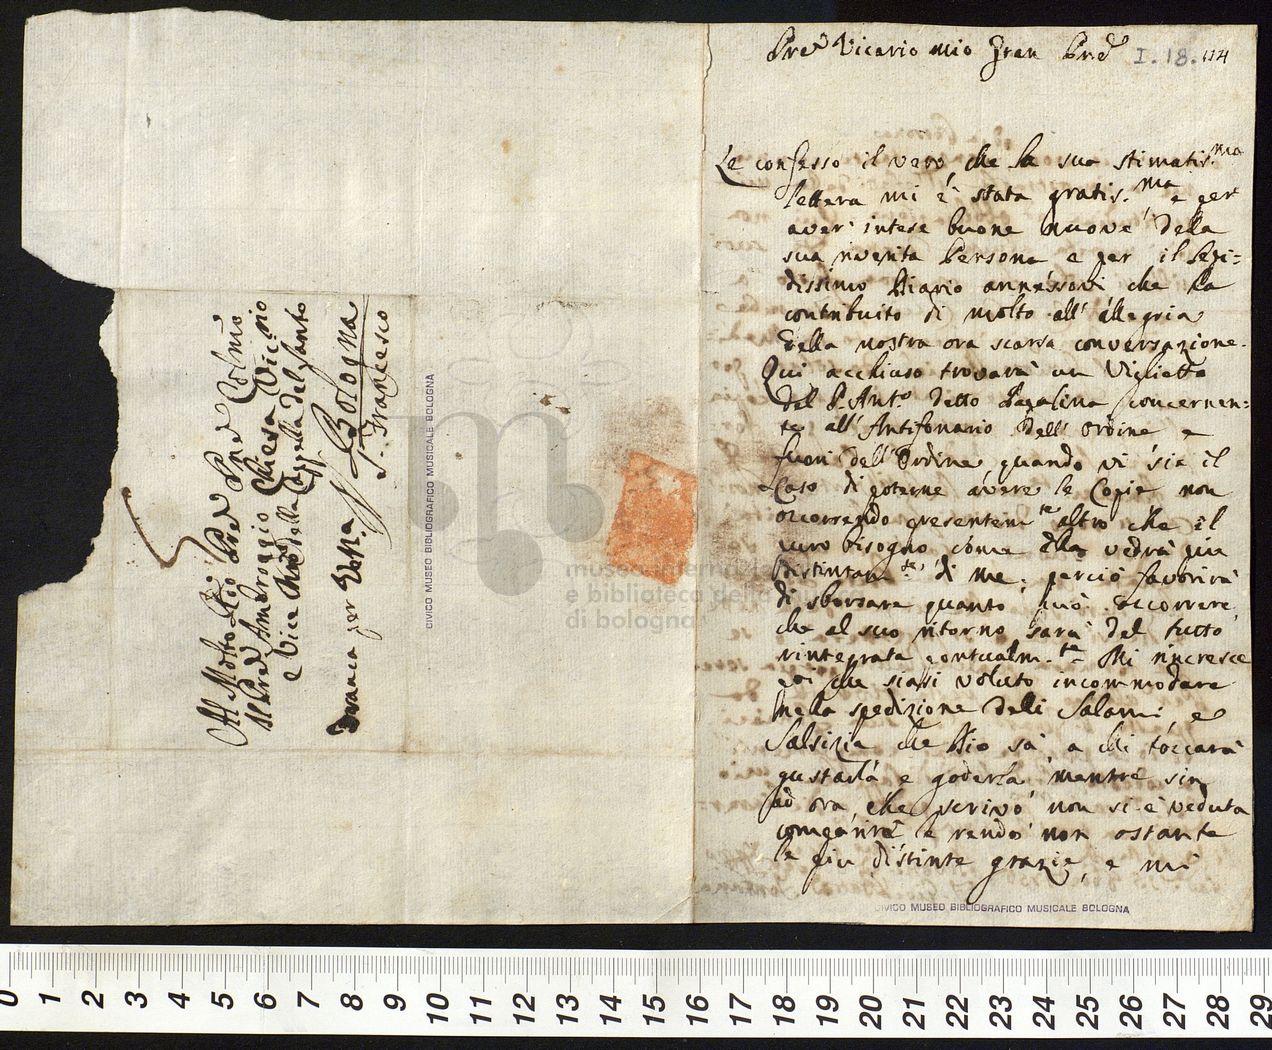 Pre Vicario mio Gran Prē
I. 18. 114
Le confesso il vero, che la sua stimatis.ma
lettera mi è stata gratis.ma, e per
aver intese buone nuove della
sua riverita Persona e per il
dissimo Diario annessovi che ha
contribuito di molto all' allegria
della nostra ora scarsa conversazione.
Qui acchiuso trovarà un Viglietto
del P. Ant.o detto Pagalina concernen=
te all' Antifonario dell' Ordine e
fuori dell' Ordine, quando vi sia il
Caso di poterne avere le Copie non
occorrendo presentem.te altro che il
puro bisogno come Ella vedrà più
distintam.te di me; perciò favorirà
di sborsare quanto può occorrere
che al suo ritorno sarà del tutto
rintegrata pontualm.te Mi rincresce
poi che siasi voluto incommodare
nella spedizione deli Salami, e
Salsizia che Dio sà a chi toccarà
gustarla e goderla mentre sin
ad ora che scrivo non si è veduta
comparire e rendo non ostante
le più distinte grazie, e mi
Al Molto Rdo Prē Prē Colmō
Il Prē Ambroggio Chiesa Vic.rio
e Vice Mro della Cappella del Santo
Franca per
Bologna
S. Francesco
CIVICO MUSEO BIBLIOGRAFICO MUSICALE BOLOGNA
CIVICO MUSEO BIBLIOGRAFICO MUSICALE BOLOGNA
museo internazionale
e biblioteca della musica
di bologna
0 1 2 3 4 5 6 7 8 9 10 11 12 13 14 15 16 17 18 19 20 21 22 23 24 25 26 27 28 29